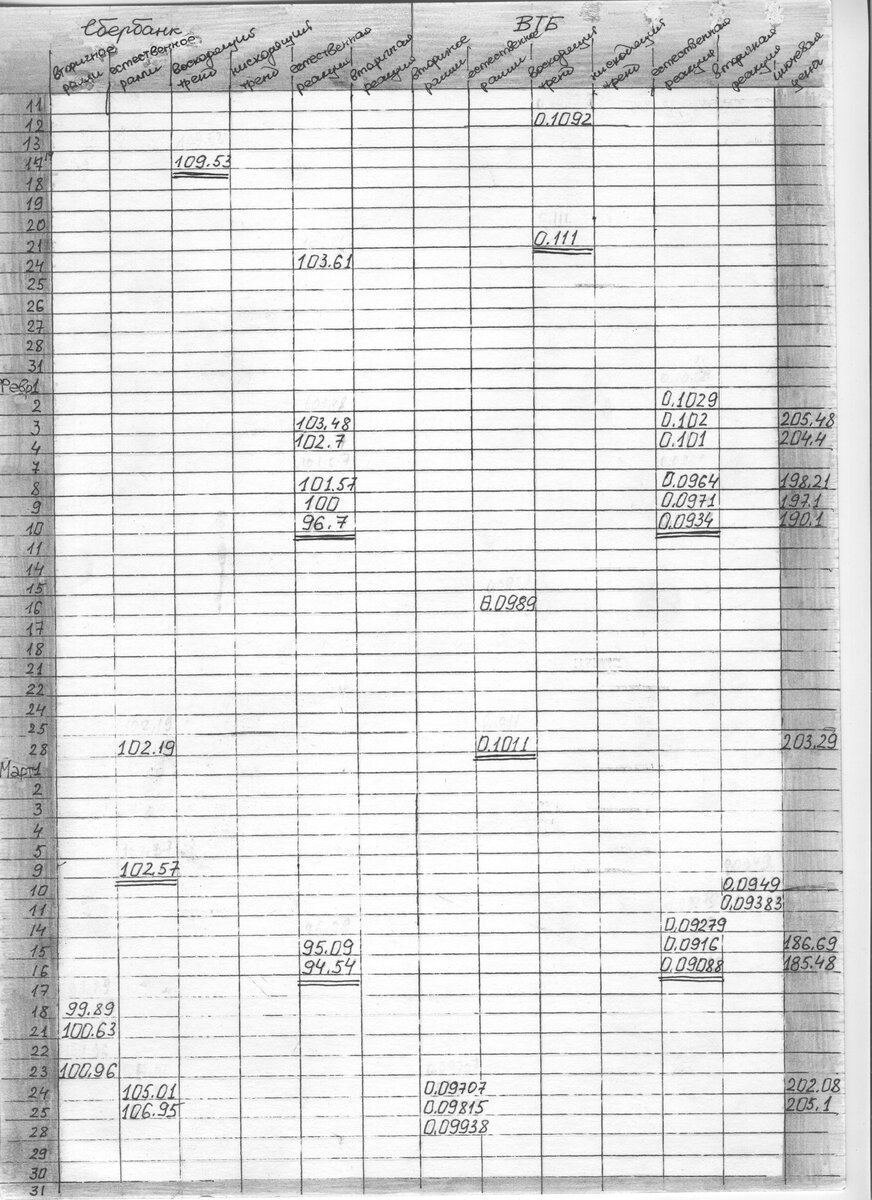 Сбербанк ВТБ
вторичное ралли естественное ралли восходящий тренд нисходящий тренд естественная реакция вторичная реакция вторичное ралли естественное ралли восходящий тренд нисходящий тренд естественная реакция вторичная реакция цена
11
12 0.1092
13
17 109.53
18
19
20
21 0.111
24 103.61
25
26
27
28
31
Февр1
2 0.1029
3 103.48 0.102 205.48
4 102.7 0.101 204.4
7
8 101.57 0.0964 198.21
9 100 0.0971 197.1
10 96.7 0.0934 190.1
11
14
15
16 0.0989
17
18
21
22
24
25
28 102.19 0.1011 203.29
Март1
2
3
4
5
9 102.57
10 0.0949
11 0.09383
14 0.09279
15 95.09 0.0916 186.69
16 94.54 0.09088 185.48
17
18 99.89
21 100.63
22
23 100.96
24 105.01 0.09707 202.08
25 106.95 0.09815 205.1
28 0.09938
29
30
31